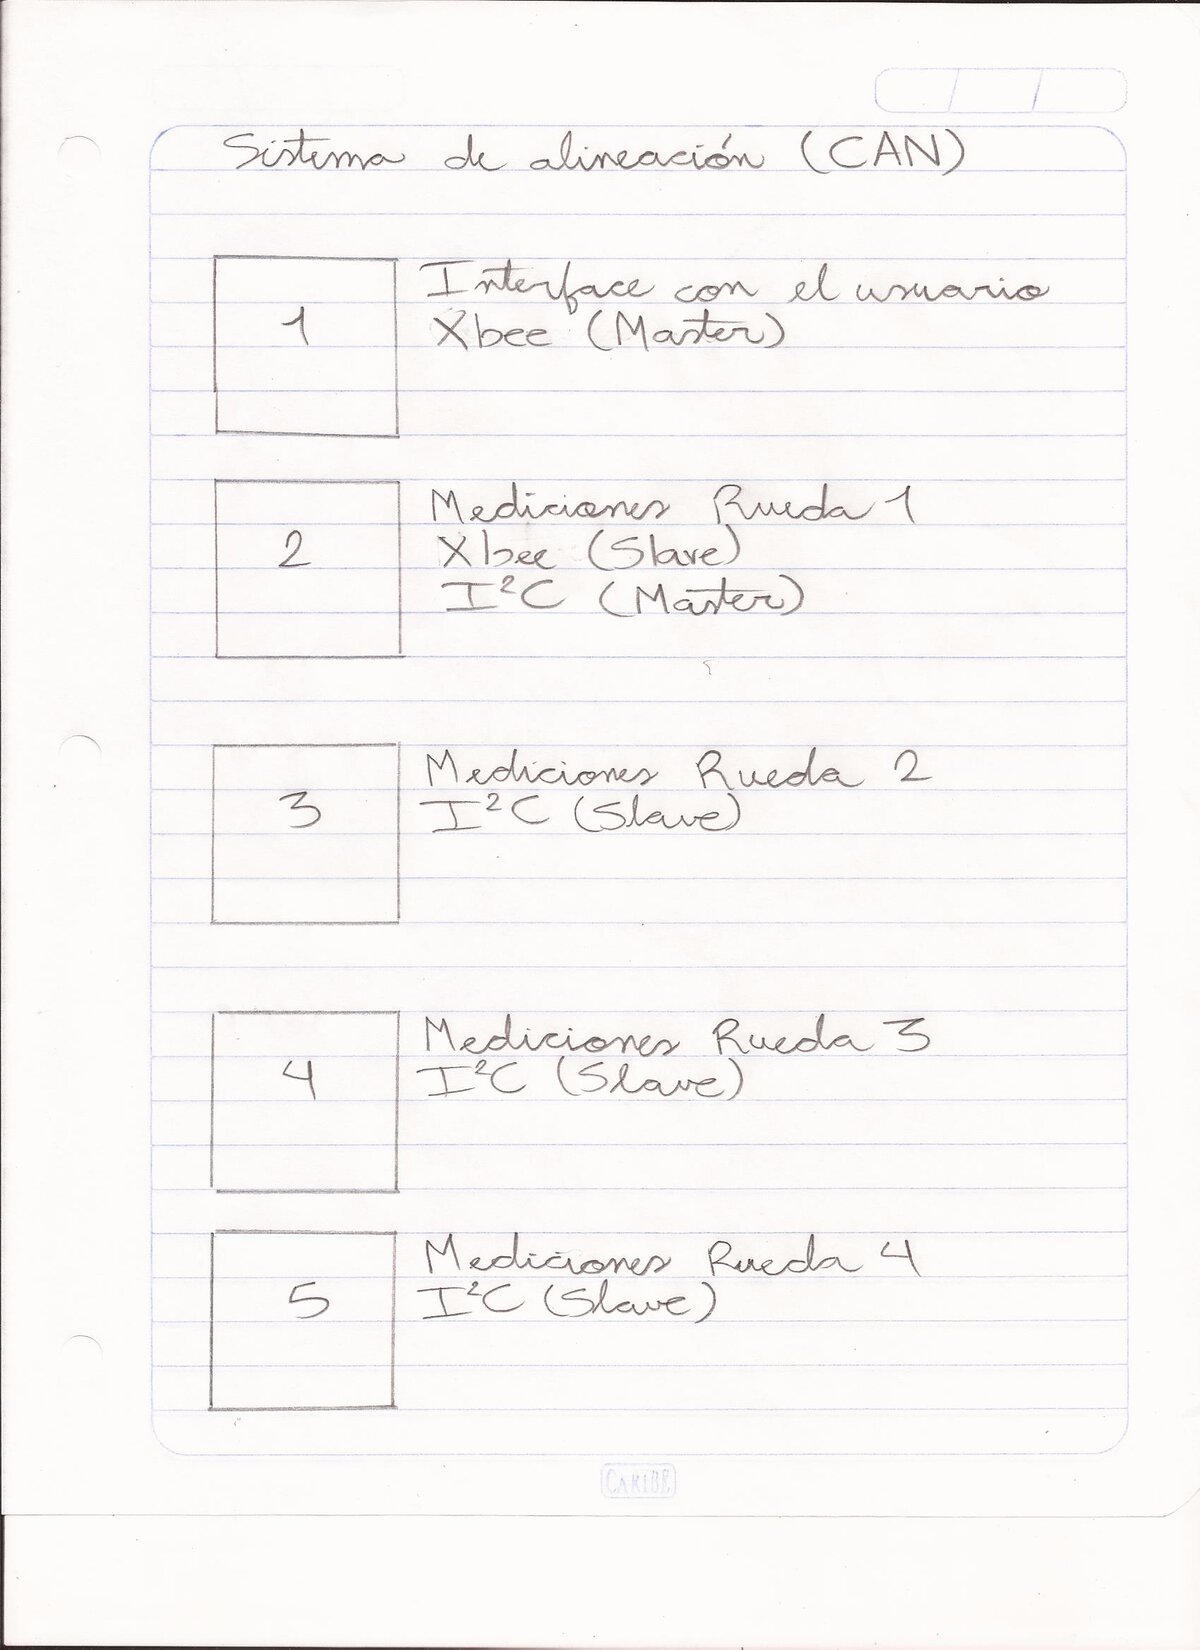 Sistema de alineación (CAN)
1
Interface con el usuario
Xbee (Master)
2
Mediciones Rueda 1
Xbee (Slave)
I²C (Master)
3
Mediciones Rueda 2
I²C (Slave)
4
Mediciones Rueda 3
I²C (Slave)
5
Mediciones Rueda 4
I²C (Slave)
CARIBE